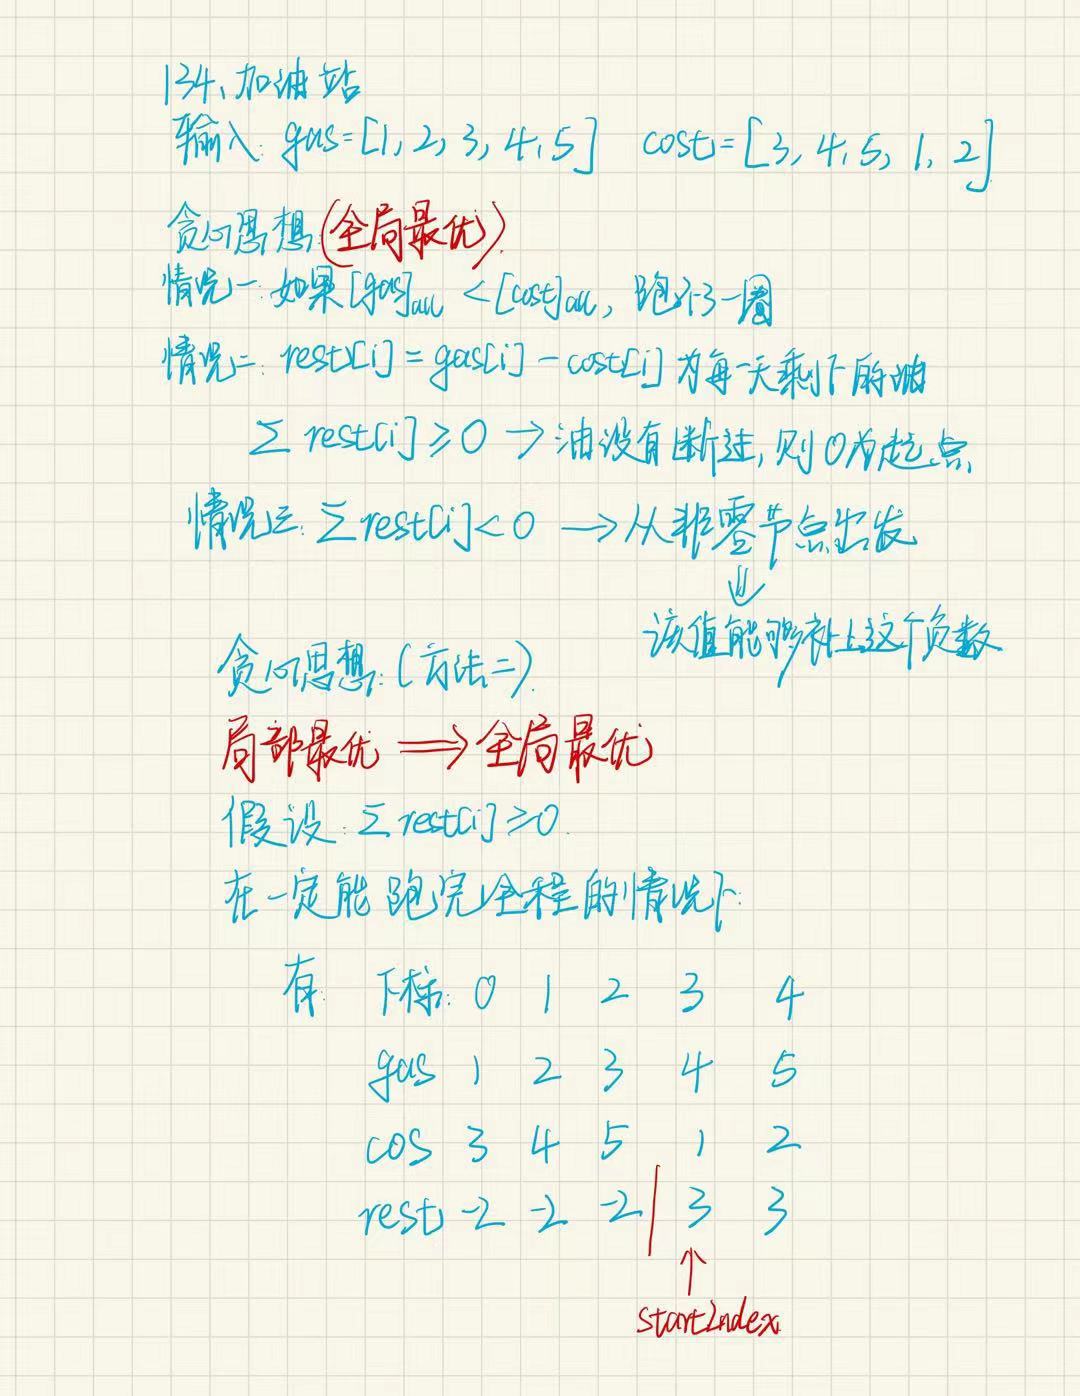 134、加油站
输入: gas=[1,2,3,4,5] cost=[3,4,5,1,2]
贪心思想:(全局最优).
情况一:如果[gas]all <[cost]all, 跑不了一圈
情况二: rest[i]=gas[i]-cost[i]为每一天剩下的油
∑ rest[i]≥0 →油没有断过,则0为起点
情况三: ∑rest[i]<0 →从非零节点出发
⇓
该值能够补上这个负数
贪心思想:(方法二).
局部最优 ⟹ 全局最优
假设: ∑rest[i]≥0.
在一定能跑完全程的情况下:
有: 下标: 0 1 2 3 4
gas 1 2 3 4 5
cos 3 4 5 1 2
rest -2 -2 -2 | 3 3
↑
startIndex